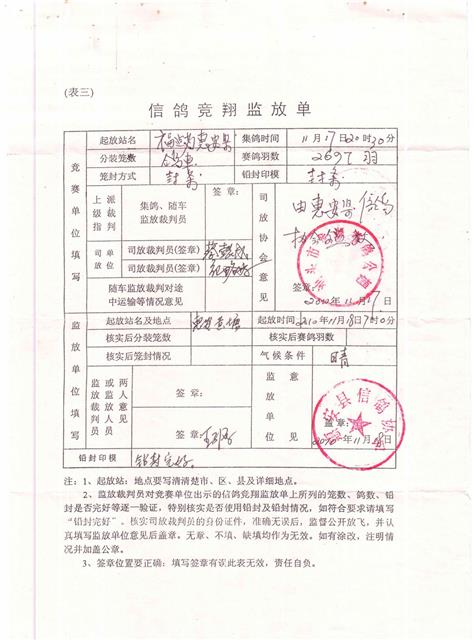 (表三)
信鸽竞翔监放单
竞赛单位填写
起放站名 福建省惠安县 集鸽时间 11月17日20时30分
分装笼数 赛鸽羽数 2697羽
笼封方式 封条 铅封印模 封条
上级指派裁判 集鸽、随车监放裁判员 签章:
司放单位 司放裁判员(签章)
司放裁判员(签章)
随车监放裁判对途中运输等情况意见
司放协会意见 由惠安县信鸽
签章:
2010年11月17日
监放单位填写
起放站名及地点 起放时间 2010年11月18日7时0分
核实后分装笼数 核实后赛鸽羽数
核实后笼封情况 气候条件 晴
监放裁判员或两人放鸽人员意见 签章:
签章:
监放单位意见 盖章:
2010年11月18日
惠安县信鸽协会
铅封印模 铅封完好
注:1、起放站:地点要写清清楚市、区、县及详细地点。
2、监放裁判员对竞赛单位出示的信鸽竞翔监放单上所列的笼数、鸽数、铅
封是否完好等逐一验证,特别核实是否使用铅封及铅封情况,如符合要求请填写
“铅封完好”。核实司放裁判员的身份证件,准确无误后,监督公开放飞,并认
真填写监放单位意见后盖章。无章、不填、缺填均作为无效。如有涂改,注明情
况并加盖公章。
3、签章位置要正确:填写签章有误此表无效,责任自负。